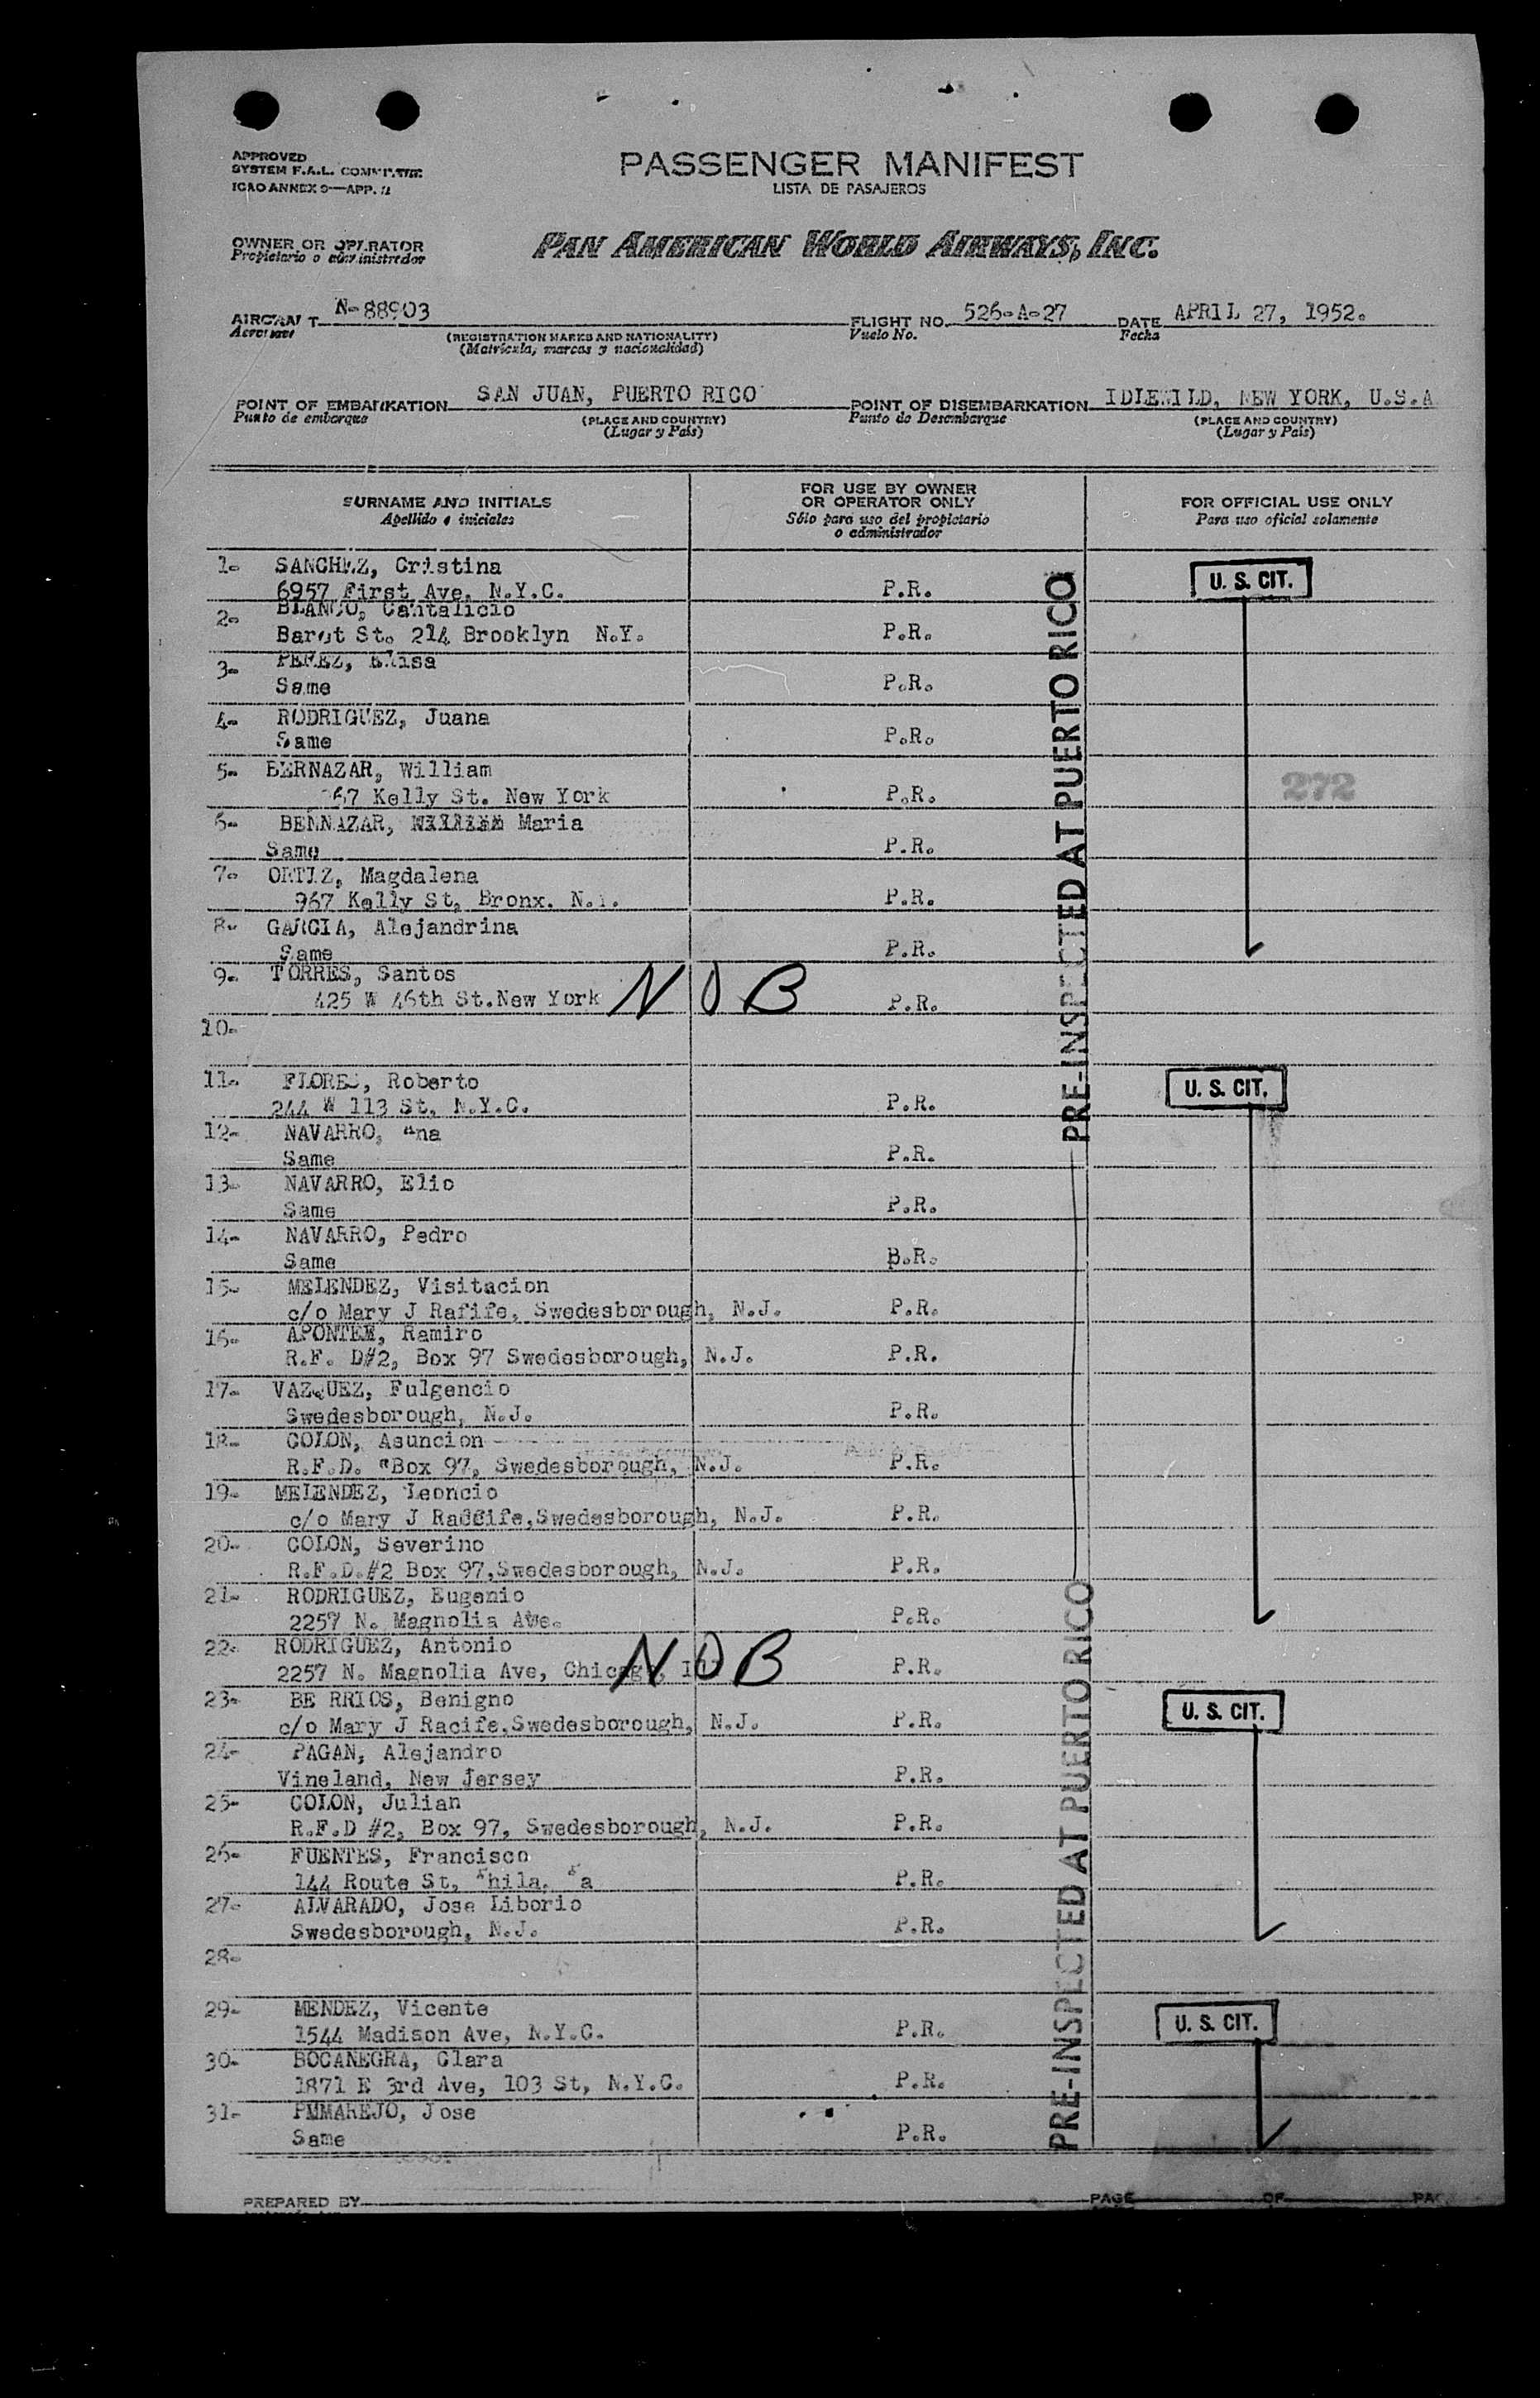 APPROVED
SYSTEM F.A.L. COMMITTEE
ICAO ANNEX 9—APP.
PASSENGER MANIFEST
LISTA DE PASAJEROS
OWNER OR OPERATOR
Propietario o administrador
PAN AMERICAN WORLD AIRWAYS, INC.
AIRCRAFT N-88903
Aeronave
(REGISTRATION MARKS AND NATIONALITY)
(Matrícula, marcas y nacionalidad)
FLIGHT NO. 526-A-27
Vuelo No.
DATE APRIL 27, 1952.
Fecha
POINT OF EMBARKATION SAN JUAN, PUERTO RICO
Punto de embarque
(PLACE AND COUNTRY)
(Lugar y País)
POINT OF DISEMBARKATION IDLEWILD, NEW YORK, U.S.A
Punto de Desembarque
(PLACE AND COUNTRY)
(Lugar y País)
SURNAME AND INITIALS
Apellido e iniciales
FOR USE BY OWNER
OR OPERATOR ONLY
Sólo para uso del propietario
o administrador
FOR OFFICIAL USE ONLY
Para uso oficial solamente
1- SANCHEZ, Cristina
6957 First Ave. N.Y.C. P.R.
U. S. CIT.
2- BLANCO, Cantalicio
St. 214 Brooklyn N.Y. P.R.
3- PEREZ, Elisa
Same P.R.
4- RODRIGUEZ, Juana
Same P.R.
5- BERNAZAR, William
67 Kelly St. New York P.R.
272
6- BENNAZAR, Maria
Same P.R.
7- ORTIZ, Magdalena
967 Kelly St, Bronx. N.Y. P.R.
8- GARCIA, Alejandrina
Same P.R.
9- TORRES, Santos
425 W 46th St.New York NOB P.R.
10-
PRE-INSPECTED AT PUERTO RICO
11- FLORES, Roberto
244 W 113 St, N.Y.C. P.R.
U. S. CIT.
12- NAVARRO, Ana
Same P.R.
13- NAVARRO, Elio
Same P.R.
14- NAVARRO, Pedro
Same P.R.
15- MELENDEZ, Visitacion
c/o Mary J Rafife, Swedesborough, N.J. P.R.
16- APONTEE, Ramiro
R.F. D#2, Box 97 Swedesborough, N.J. P.R.
17- VAZQUEZ, Fulgencio
Swedesborough, N.J. P.R.
18- COLON, Asuncion
R.F.D. "Box 97, Swedesborough, N.J. P.R.
19- MELENDEZ, Leoncio
c/o Mary J Swedesborough, N.J. P.R.
20- COLON, Severino
R.F.D.#2 Box 97,Swedesborough, N.J. P.R.
21- RODRIGUEZ, Eugenio
2257 N. Magnolia Ave. P.R.
22- RODRIGUEZ, Antonio
2257 N. Magnolia Ave, Chicago, NOB P.R.
23- BE RRIOS, Benigno
c/o Mary J Racife,Swedesborough, N.J. P.R.
U. S. CIT.
24- PAGAN, Alejandro
Vineland, New Jersey P.R.
25- COLON, Julian
R.F.D #2, Box 97, Swedesborough, N.J. P.R.
26- FUENTES, Francisco
144 Route St, Phila. Pa P.R.
27- ALVARADO, Jose Liborio
Swedesborough, N.J. P.R.
28-
29- MENDEZ, Vicente
1544 Madison Ave, N.Y.C. P.R.
U. S. CIT.
30- BOCANEGRA, Clara
1871 E 3rd Ave, 103 St, N.Y.C. P.R.
31- Jose
Same P.R.
PRE-INSPECTED AT PUERTO RICO
PREPARED BY
PAGE OF